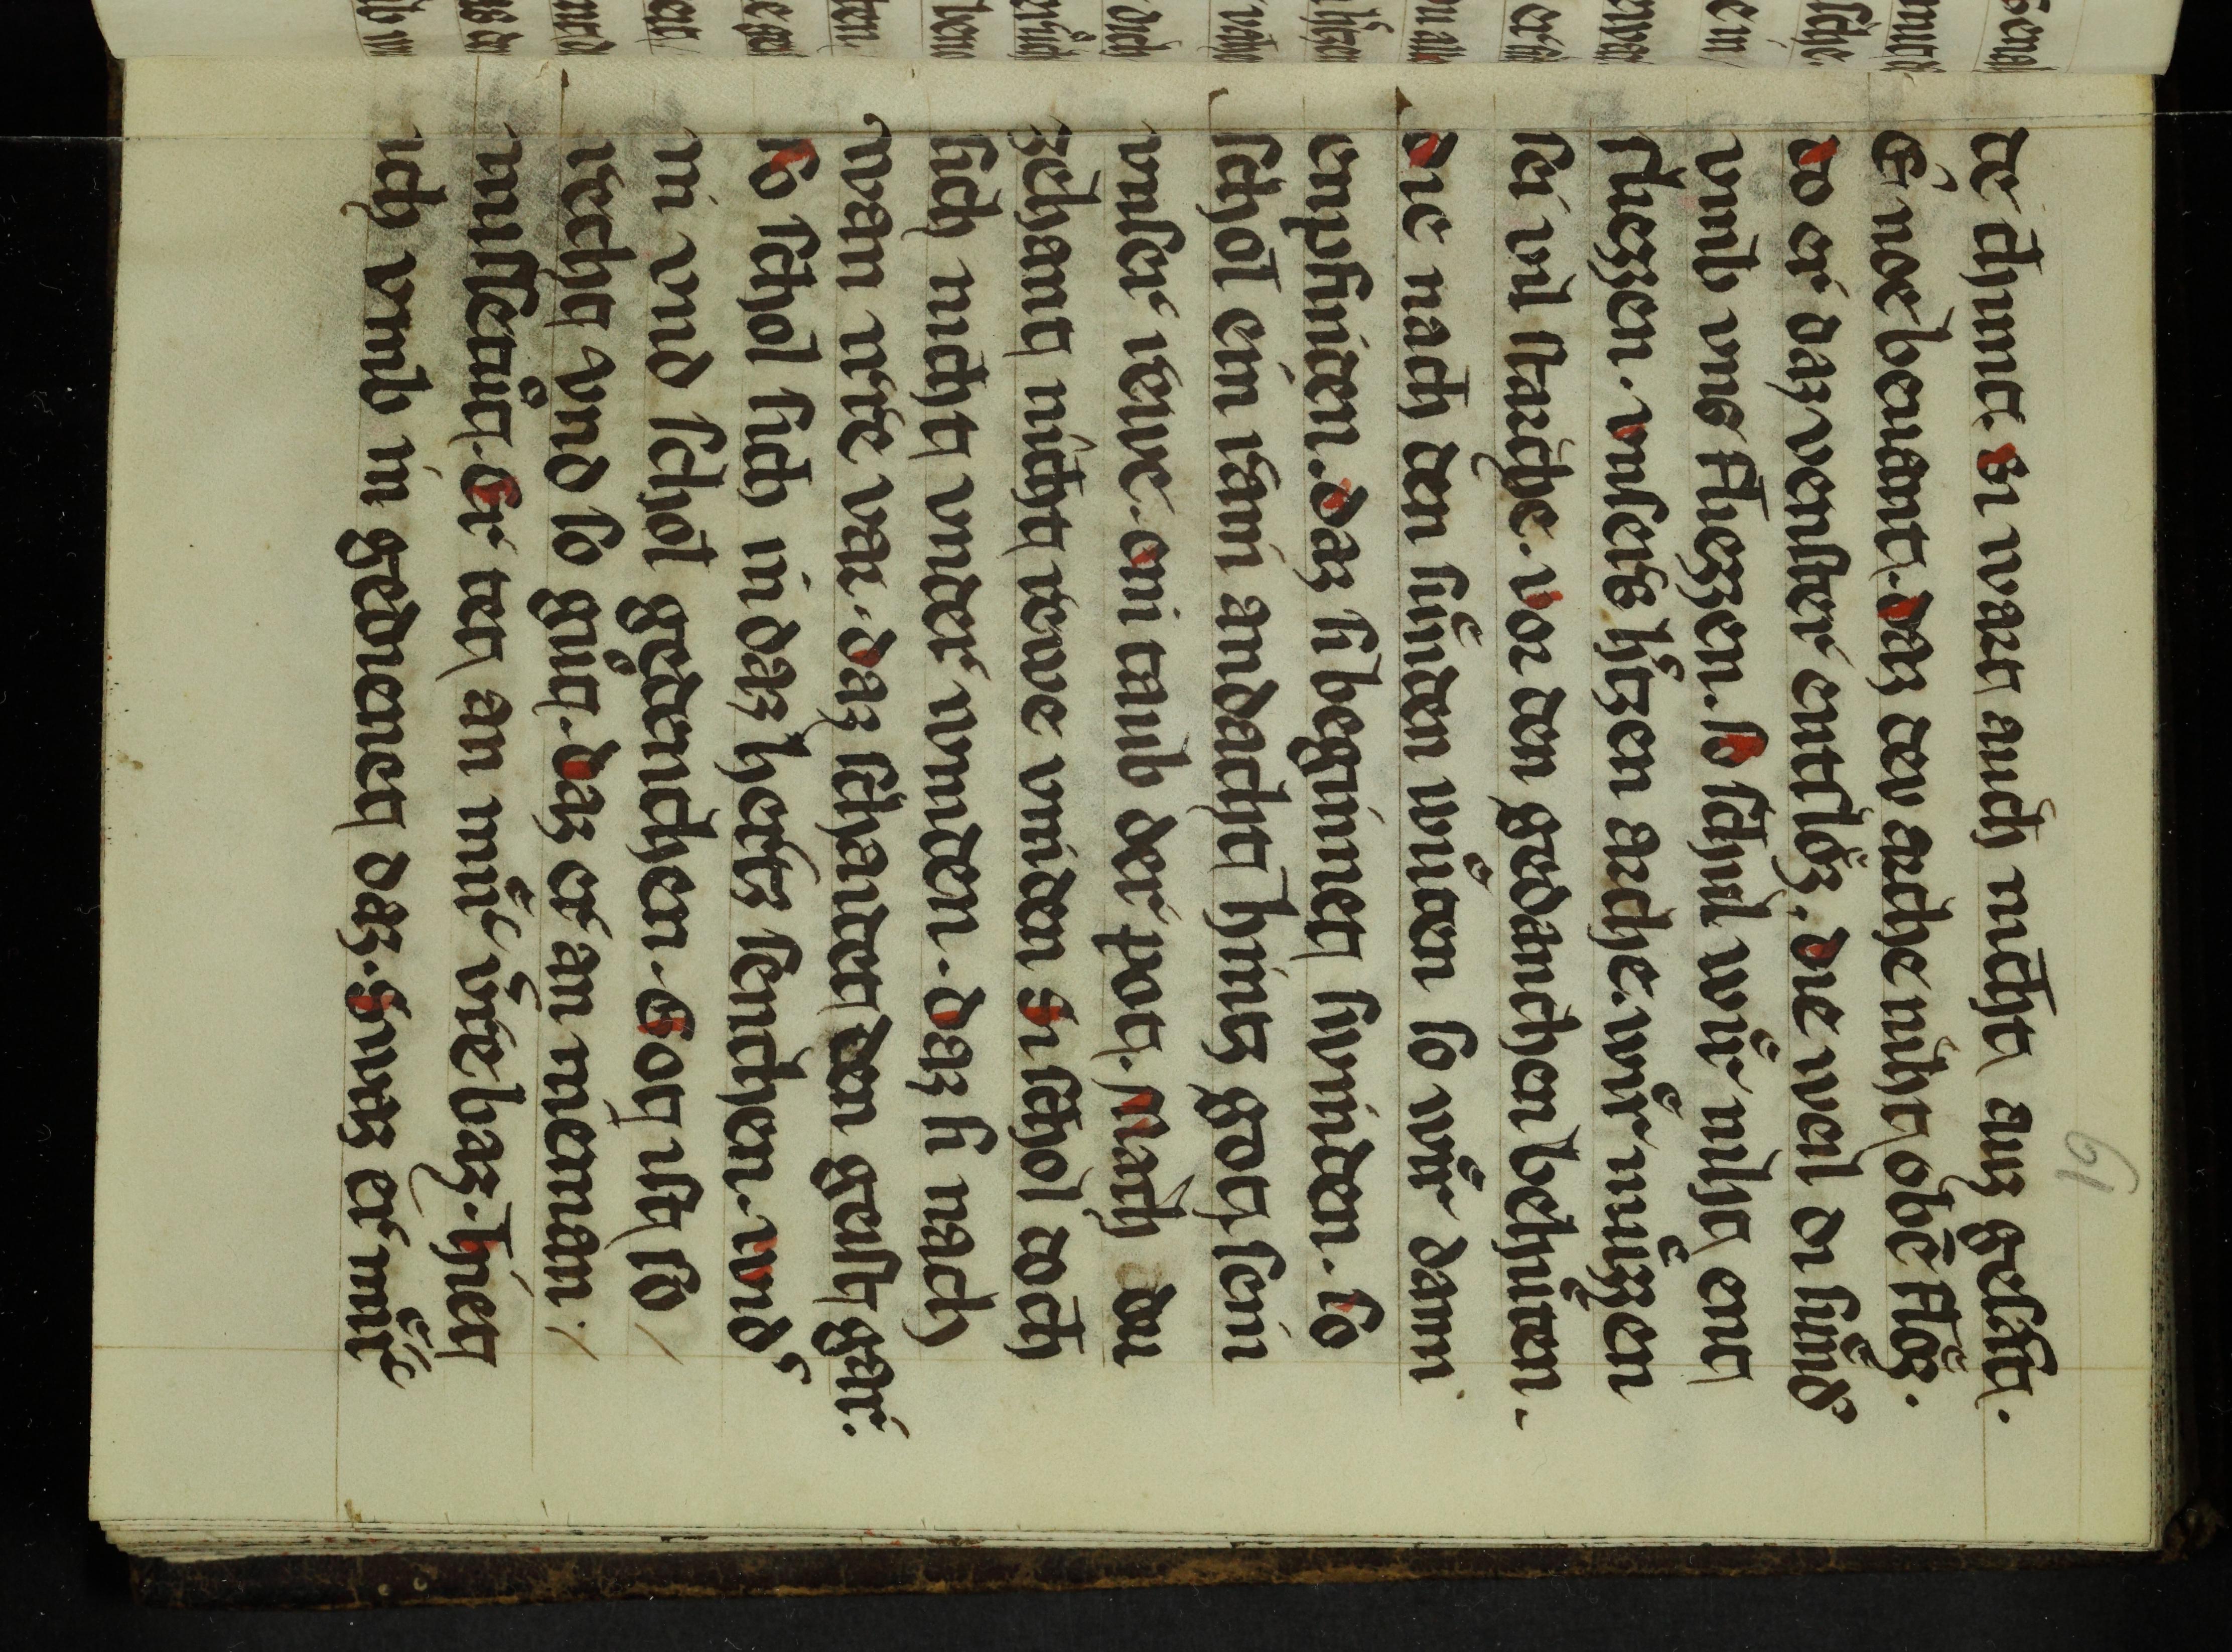 de chumt. Si wart auch nicht auz gesigt.
E noe bevant. daz dev arche niht obē floz.
do er daz venster entsloz. die weil di sůnd
vmb vns fliezzen. so schul wir niht ent
sliezzen. vnsers hertzen arche. wir mugzen
sei vil starche. vor den gedanchen behuten.
die nach den sunden wůten so wir dann
emphinten. daz si beginnet swinden. so
schol ein raín andacht hintz got sein
vnser rewe. ein taub der pot. nach der
zehant nicht rewe vinden Si schol doch
sich nicht vnder winden. daz si nach
wann vrre var. daz schaidet den geist gar.
so schol sich in daz hertz senchen. vnd
in vnd schol gedenchen. Got ist so
recht vnd so guͦt. daz er an nieman
missetuͦt. Er tet an mir vrre baz. hiet
ich vmb in gedienet daz. Swes er mite
61